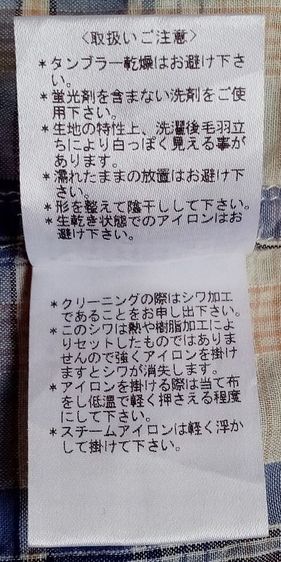 <取扱いご注意>
*タンブラー乾燥はお避け下さ
い。
*蛍光剤を含まない洗剤をご使
用下さい。
*生地の特性上、洗濯後毛羽立
ちにより白っぽく見える事が
あります。
*濡れたままの放置はお避け下
さい。
*形を整えて陰干しして下さい。
*生乾き状態でのアイロンはお
避け下さい。
*クリーニングの際はシワ加工
であることをお申し出下さい。
*このシワは熱や樹脂加工によ
りセットしたものではありま
せんので強くアイロンを掛け
ますとシワが消失します。
*アイロンを掛ける際は当て布
をし低温で軽く押さえる程度
にして下さい。
*スチームアイロンは軽く浮か
して掛けて下さい。